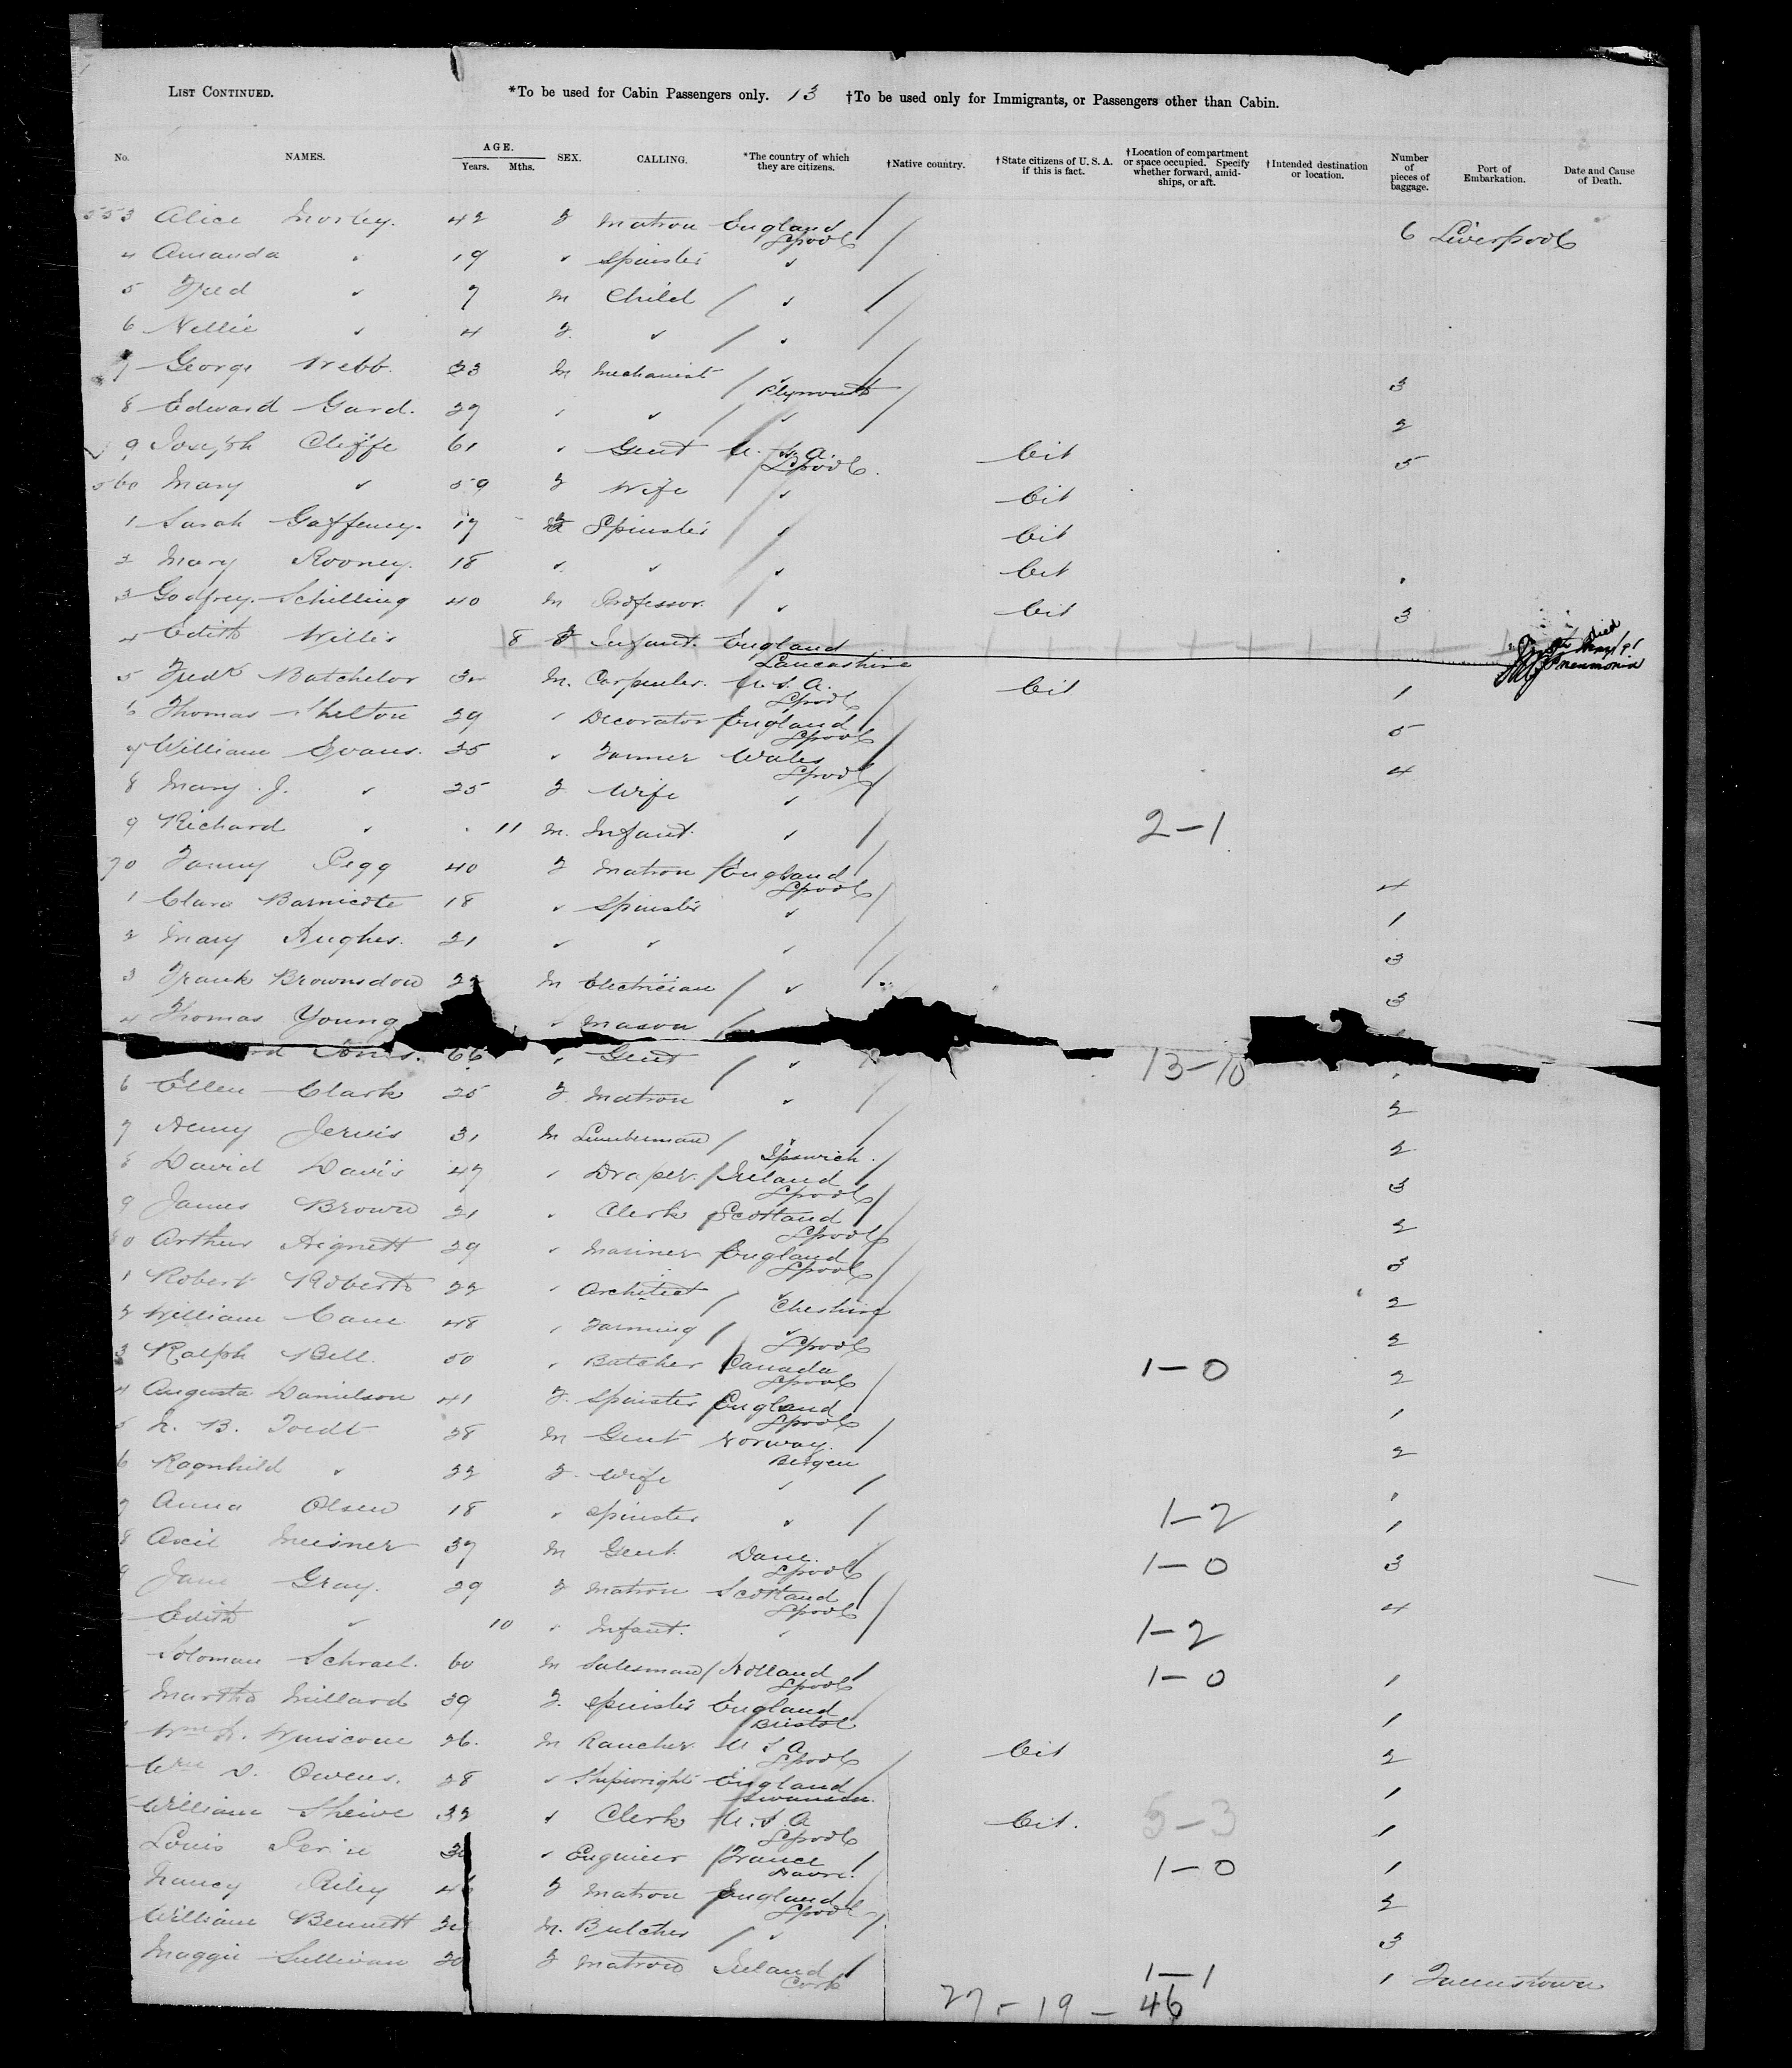 LIST CONTINUED. *To be used for Cabin Passengers only. 13 †To be used only for Immigrants, or Passengers other than Cabin.
No. NAMES. AGE. Years. Mths. SEX. CALLING. *The country of which they are citizens. †Native country. †State citizens of U. S. A. if this is fact. †Location of compartment or space occupied. Specify whether forward, amidships, or aft. †Intended destination or location. Number of pieces of baggage. Port of Embarkation. Date and Cause of Death.
553 Alice Morley. 42 F Matron England L'pool 6 Liverpool
4 Amanda " 19 " Spinster "
5 Fred " 7 M Child "
6 Nellie " 4 F. " "
7 George Webb. 23 M Mechanist " Plymouth 3
8 Edward Gard. 27 " " " 2
9 Joseph Cliffe 61 " Gent U. S. A. L'pool. Cit 5
560 Mary " 59 F Wife " Cit
1 Sarah Gaffeney. 17 F Spinster " Cit
2 Mary Rooney. 18 " " " Cit
3 Godfrey Schilling 40 M Professor. " Cit 3
4 Edith Willis 8 F Infant. England Lancashire died Pneumonia
5 Fredk Batchelor M. Carpenter. U. S. A. L'pool Cit 1
6 Thomas Shelton 29 " Decorator England L'pool 5
7 William Evans. 25 " Farmer Wales L'pool 4
8 Mary J. " 25 F Wife "
9 Richard " 11 M. Infant. " 2-1
70 Fanny Pegg 40 F Matron England L'pool 4
1 Clara Barnicote 18 " Spinster " 1
2 Mary Hughes. 21 " " " 3
3 Frank Brownsdon M Electrician " 3
4 Thomas Young " Mason
Jones. 66 " Gent " 13-10
6 Ellen Clark 25 F. Matron " 2
7 Henry Jervis 31 M Lumberman " Ipswich. 2
8 David Davis 47 " Draper. Ireland L'pool 3
9 James Brown 21 " Clerk Scotland L'pool 2
80 Arthur Hignett 29 " Mariner England L'pool 3
1 Robert Roberts 22 " Architect " Cheshire 2
2 William Cane 48 " Farming " L'pool 2
3 Ralph Bell. 50 " Butcher Canada L'pool 1-0 2
4 Augusta Danielson 41 F. Spinster England L'pool 1
5 N. B. Toedt 28 M Gent Norway. Bergen 2
6 Ragnhild " 22 F. Wife "
7 Anna Olsen 18 " Spinster " 1-2 1
8 Axil Meisner 37 M Gent. Dane. L'pool 1-0 3
9 Jane Gray. 29 F Matron Scotland L'pool 4
Edith " 10 " Infant. " 1-2
Soloman Schrael. 60 M Salesman Holland L'pool 1-0 1
Martha Millard 39 F. Spinster England Bristol 1
26. M Rancher. U S A L'pool Cit 2
Wm D. Owens. 28 " Shipwright England Swansea. 1
William 32 " Clerk U. S. A L'pool Cit. 5-3 1
Louis " Engineer France Havre. 1-0 1
Nancy Riley 46 F Matron England L'pool 2
William Bennett M. Butcher " 3
Maggie Sullivan 20 F Matron Ireland Cork 1-1 1 Queenstown
27 - 19 - 46